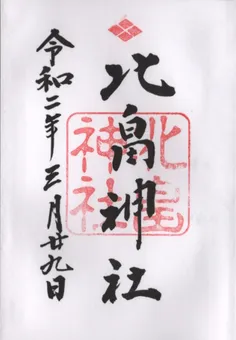 北畠神社
北畠神社
令和二年三月廿九日